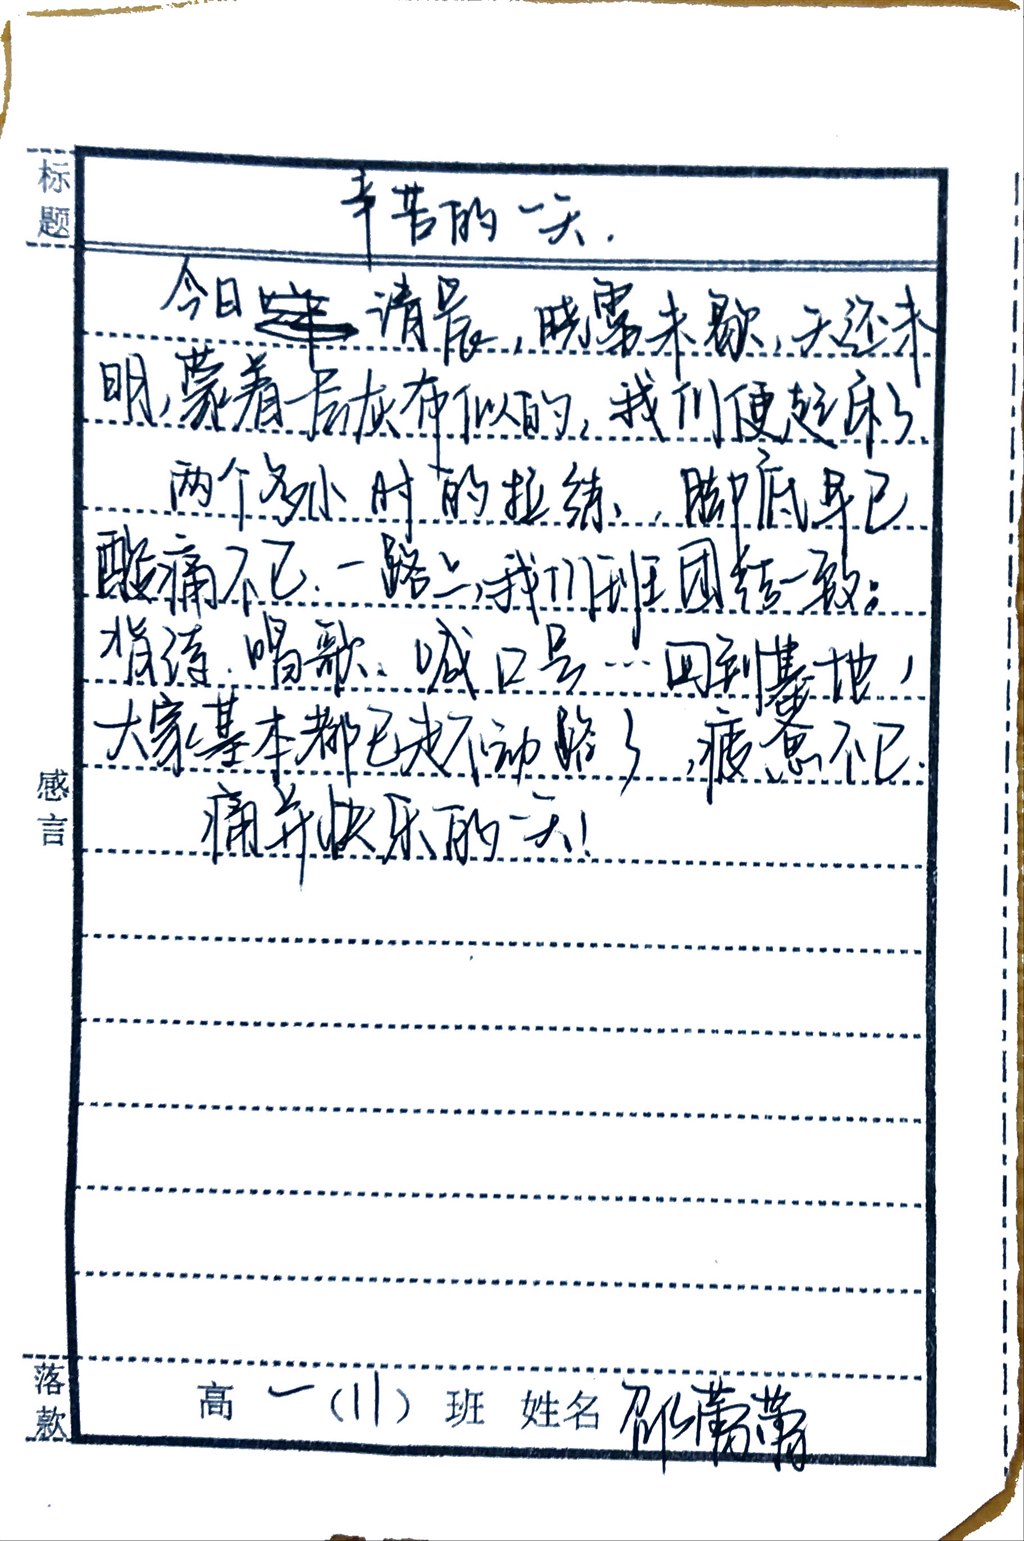 标题
辛苦的一天.
今日清晨，晓雾未歇，天还未
明，蒙着一层灰布似的，我们便起床了
两个多小时的拉练，脚底早已
酸痛不已.一路上，我们班团结一致：
背诗、唱歌、喊口号…回到基地，
大家基本都已走不动路了，疲惫不已.
痛并快乐的一天！
感言
落款
高一(11)班 姓名 邵